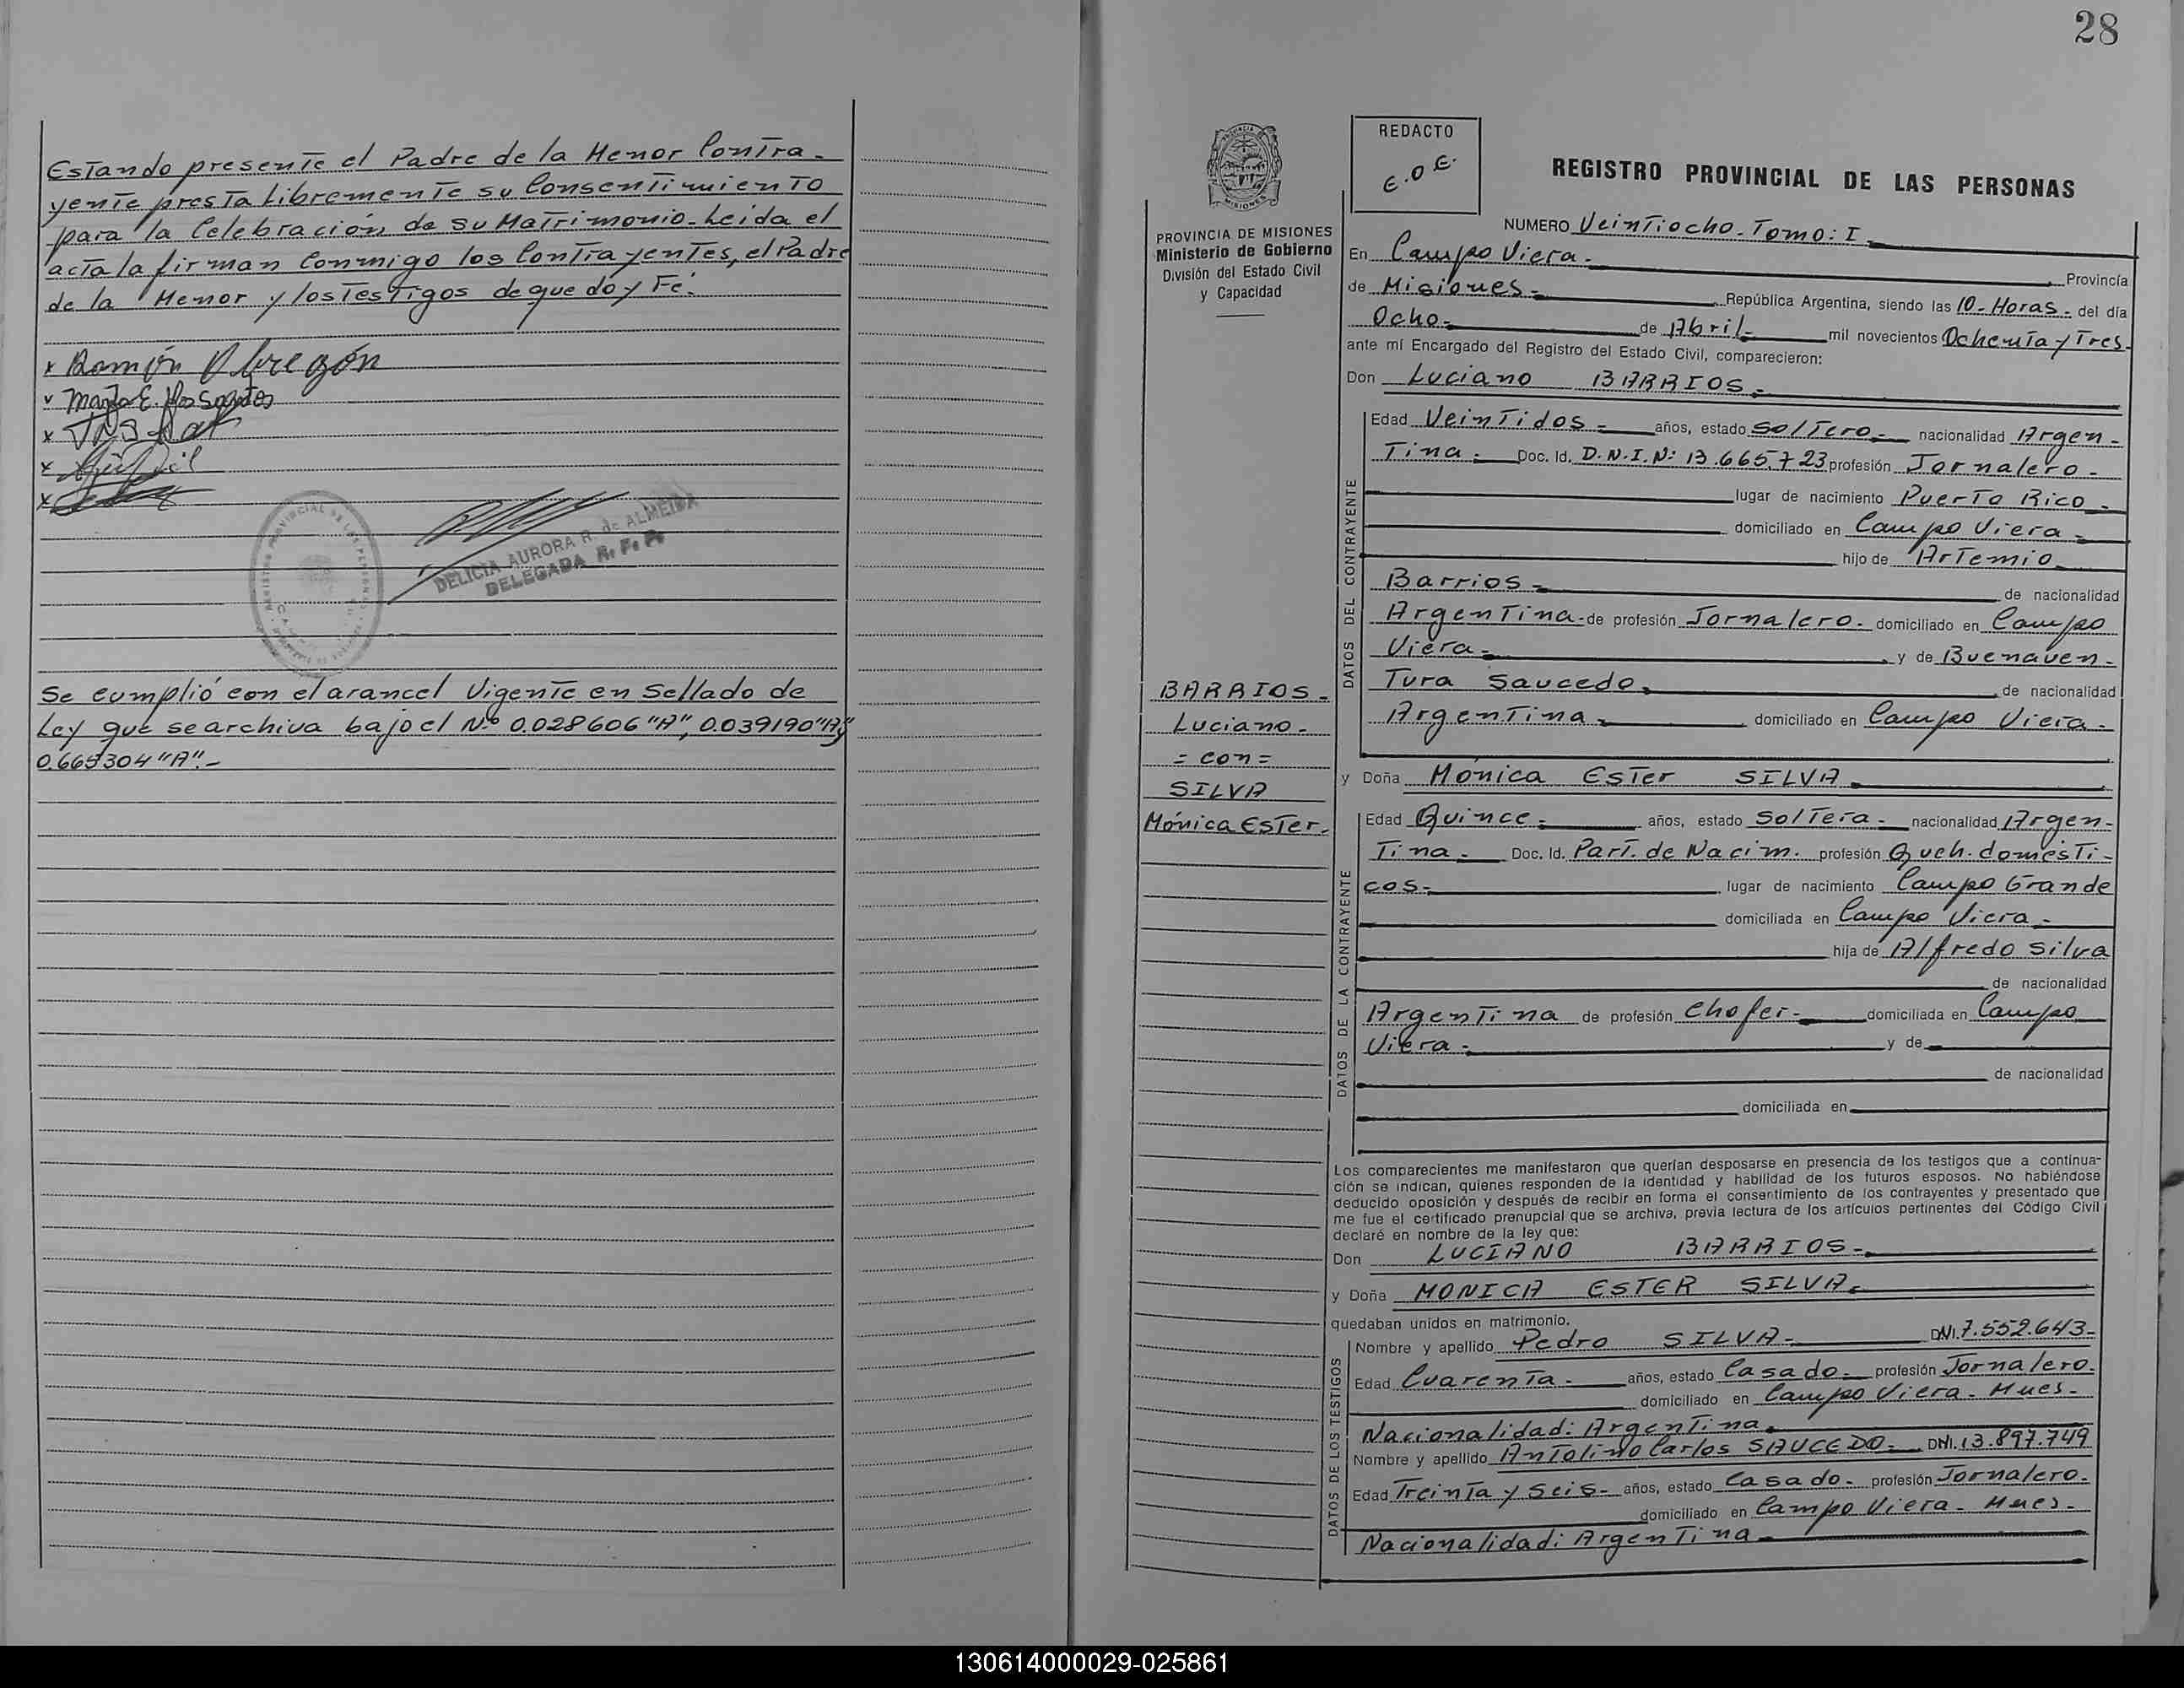 Estando presente el Padre de la Menor Contra-
yente presta Libremente su Consentimiento
para la Celebración de su Matrimonio. Leída el
acta la firman Conmigo los Contrayentes, el Padre
de la Menor y los Testigos de que doy Fé.
x Ramón Obregón
x
x
x
DELICIA AURORA R. de ALMEIDA
DELEGADA R. P. P.
Se cumplió con el arancel Vigente en Sellado de
Ley que se archiva bajo el Nº 0.028606 "A", 0.039190 "A" y
"A".-
28
REDACTO
PROVINCIA DE MISIONES
Ministerio de Gobierno
División del Estado Civil
y Capacidad
BARRIOS-
Luciano-
= con =
SILVA
Mónica Ester.
REGISTRO PROVINCIAL DE LAS PERSONAS
NUMERO Veintiocho. Tomo: I
En Campo Viera.- Provincia
de Misiones.- República Argentina, siendo las 10-Horas- del día
Ocho- de Abril- mil novecientos Ochenta y Tres-
ante mí Encargado del Registro del Estado Civil, comparecieron:
Don Luciano BARRIOS.-
DATOS DEL CONTRAYENTE
Edad Veintidos- años, estado Soltero- nacionalidad Argen-
tina- Doc. Id. D.N.I.Nº 13.665.723 profesión Jornalero-
lugar de nacimiento Puerto Rico-
domiciliado en Campo Viera-
hijo de Artemio
Barrios- de nacionalidad
Argentina- de profesión Jornalero- domiciliado en Campo
Viera- y de Buenaven-
tura Saucedo. de nacionalidad
Argentina- domiciliado en Campo Viera-
y Doña Mónica Ester SILVA-
DATOS DE LA CONTRAYENTE
Edad Quince- años, estado Soltera- nacionalidad Argen-
tina- Doc. Id. Part. de Nacim. profesión Queh. domésti-
cos- lugar de nacimiento Campo Grande
domiciliada en Campo Viera-
hija de Alfredo Silva
de nacionalidad
Argentina de profesión Chofer- domiciliada en Campo
Viera- y de
de nacionalidad
domiciliada en
Los comparecientes me manifestaron que querían desposarse en presencia de los testigos que a continua-
ción se indican, quienes responden de la identidad y habilidad de los futuros esposos. No habiéndose
deducido oposición y después de recibir en forma el consentimiento de los contrayentes y presentado que
me fue el certificado prenupcial que se archiva, previa lectura de los artículos pertinentes del Código Civil
declaré en nombre de la ley que:
Don LUCIANO BARRIOS-
y Doña MONICA ESTER SILVA-
quedaban unidos en matrimonio.
DATOS DE LOS TESTIGOS
Nombre y apellido Pedro SILVA- DNI. 7.552.643-
Edad Cuarenta- años, estado Casado- profesión Jornalero-
domiciliado en Campo Viera- Mnes-
Nacionalidad: Argentina.
Nombre y apellido Antolino Carlos SAUCEDO- DNI. 13.897.749
Edad Treinta y Seis- años, estado Casado- profesión Jornalero-
domiciliado en Campo Viera- Mnes-
Nacionalidad: Argentina-
130614000029-025861